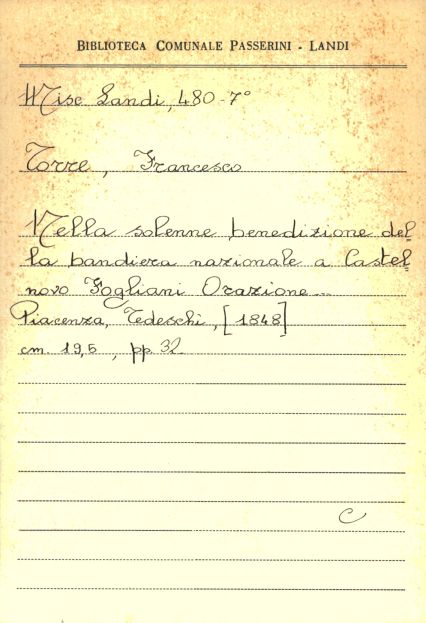 BIBLIOTECA COMUNALE PASSERINI - LANDI
Misc Landi, 480-7°
Torre, Francesco
Nella solenne benedizione del
la bandiera nazionale a Castel
novo Fogliani Orazione...
Piacenza, Tedeschi, [1848]
cm. 19,5, pp. 32
C